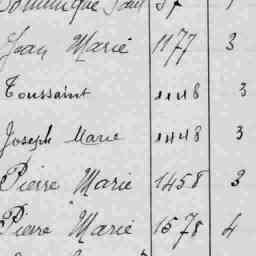 Dominique Paul 57
Jean Marie 1177 3
Toussaint 1148 3
Joseph Marie 1448 3
Pierre Marie 1458 3
Pierre Marie 1578 4